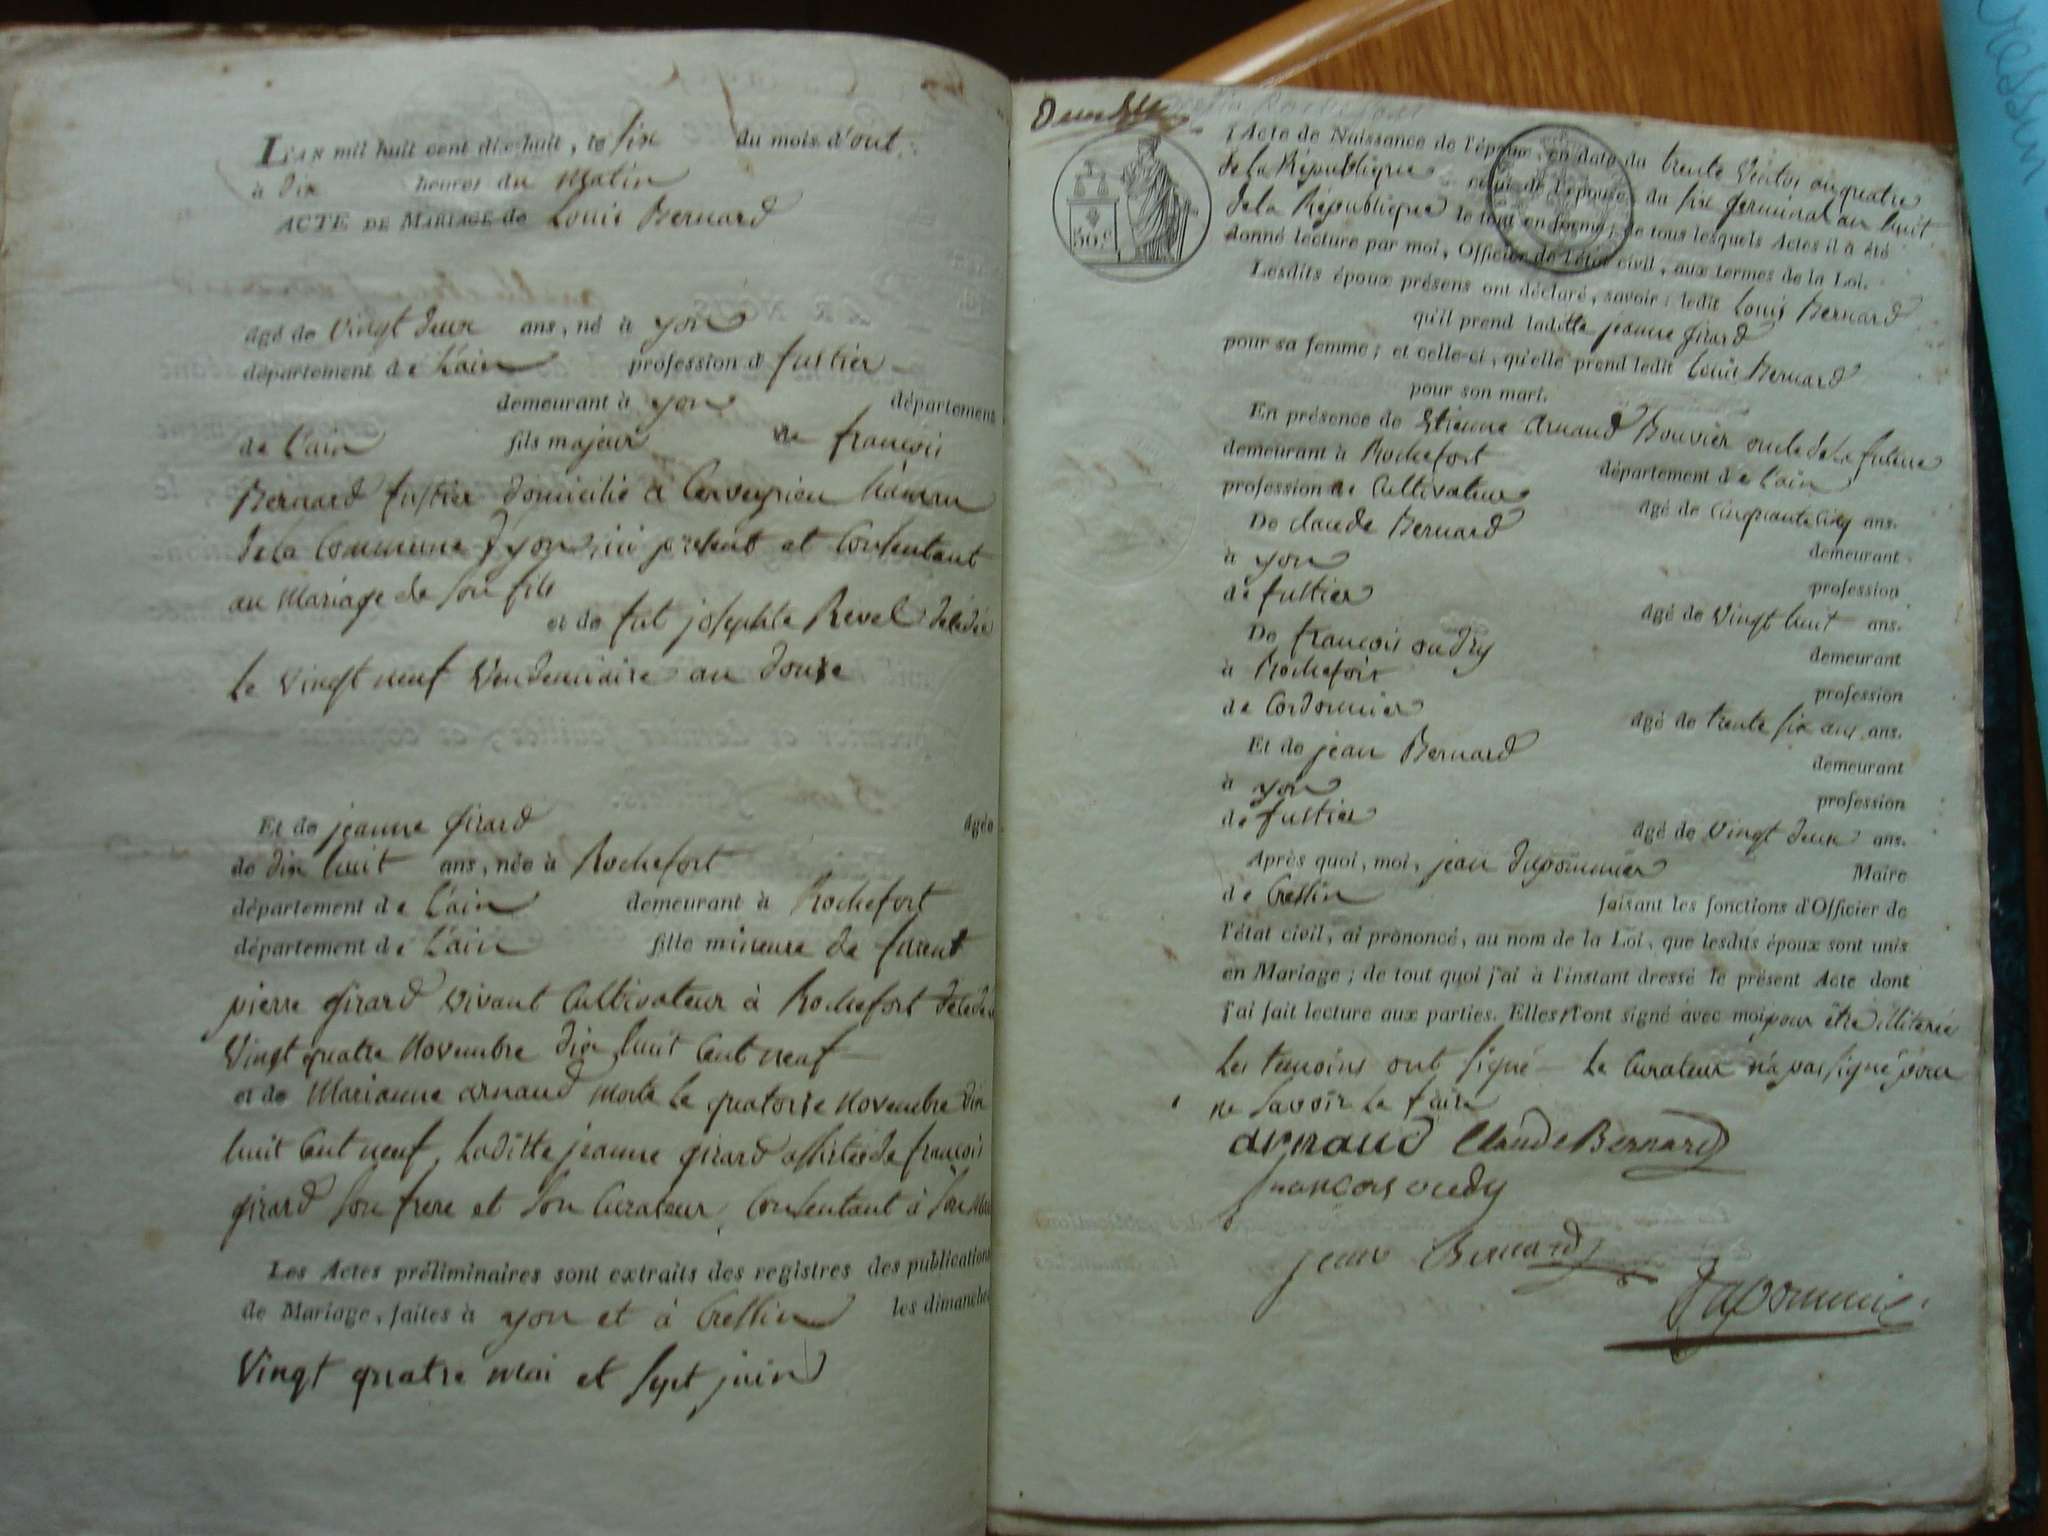 L'AN mil huit cent dix-huit, le six du mois d'out
à dix heures du Matin
ACTE DE MARIAGE de Louis Bernard
agé de vingt deux ans, né à yon
département de L'ain profession d fustier
demeurant à yon département
de L'ain fils majeur de françois
Bernard fustier domicilié a Cerveyrieu hameau
de la Commune d'yon ici present et Consentant
au Mariage de son fils
et de fut josephte Revel décédée
le vingt neuf Vendemiaire an douze
Et de jeanne girard agée
de dix huit ans, née à Rochefort
département de L'ain demeurant à Rochefort
département de L'ain fille mineure de furent
pierre girard vivant Cultivateur à Rochefort décédé
Vingt quatre Novembre dix huit Cent neuf
et de Marianne arnaud morte le quatorze Novembre dix
huit Cent neuf, Laditte jeanne girard assistée de françois
girard son frere et son Curateur, Consentant à son
Les Actes préliminaires sont extraits des registres des publications
de Mariage, faites à yon et à Cressin les dimanches
Vingt quatre mai et sept juin
50.c
l'Acte de Naissance de l'époux, en date du trente Ventos an quatre
de la République celui de l'épouse, du six germinal an huit
de la République le tout en forme; de tous lesquels Actes il a été
donné lecture par moi, Officier de l'état civil, aux termes de la Loi.
Lesdits époux présens ont déclaré, savoir: ledit Louis Bernard
qu'il prend laditte jeanne girard
pour sa femme; et celle-ci, qu'elle prend ledit Louis Bernard
pour son mari.
En présence de Etienne Arnaud Bouvier oncle de la future
demeurant à Rochefort département de L'ain
profession de Cultivateur agé de Cinquante Cinq ans.
De claude Bernard demeurant
à yon profession
de fustier agé de Vingt huit ans.
De françois oudry demeurant
à Rochefort profession
de Cordonnier agé de trente six ans ans.
Et de jean Bernard demeurant
à yon profession
de fustier agé de Vingt deux ans.
Après quoi, moi, jean dupommier Maire
de Cressin faisant les fonctions d'Officier de
l'état civil, ai prononcé, au nom de la Loi, que lesdits époux sont unis
en Mariage; de tout quoi j'ai à l'instant dressé le présent Acte dont
j'ai fait lecture aux parties. Elles n'ont signé avec moi pour être illiterée
Les temoins ont signé - Le Curateur n'a pas signé pour
ne savoir le faire
arnaud Claude Bernard
francois oudy
jean Bernard
Dupommier